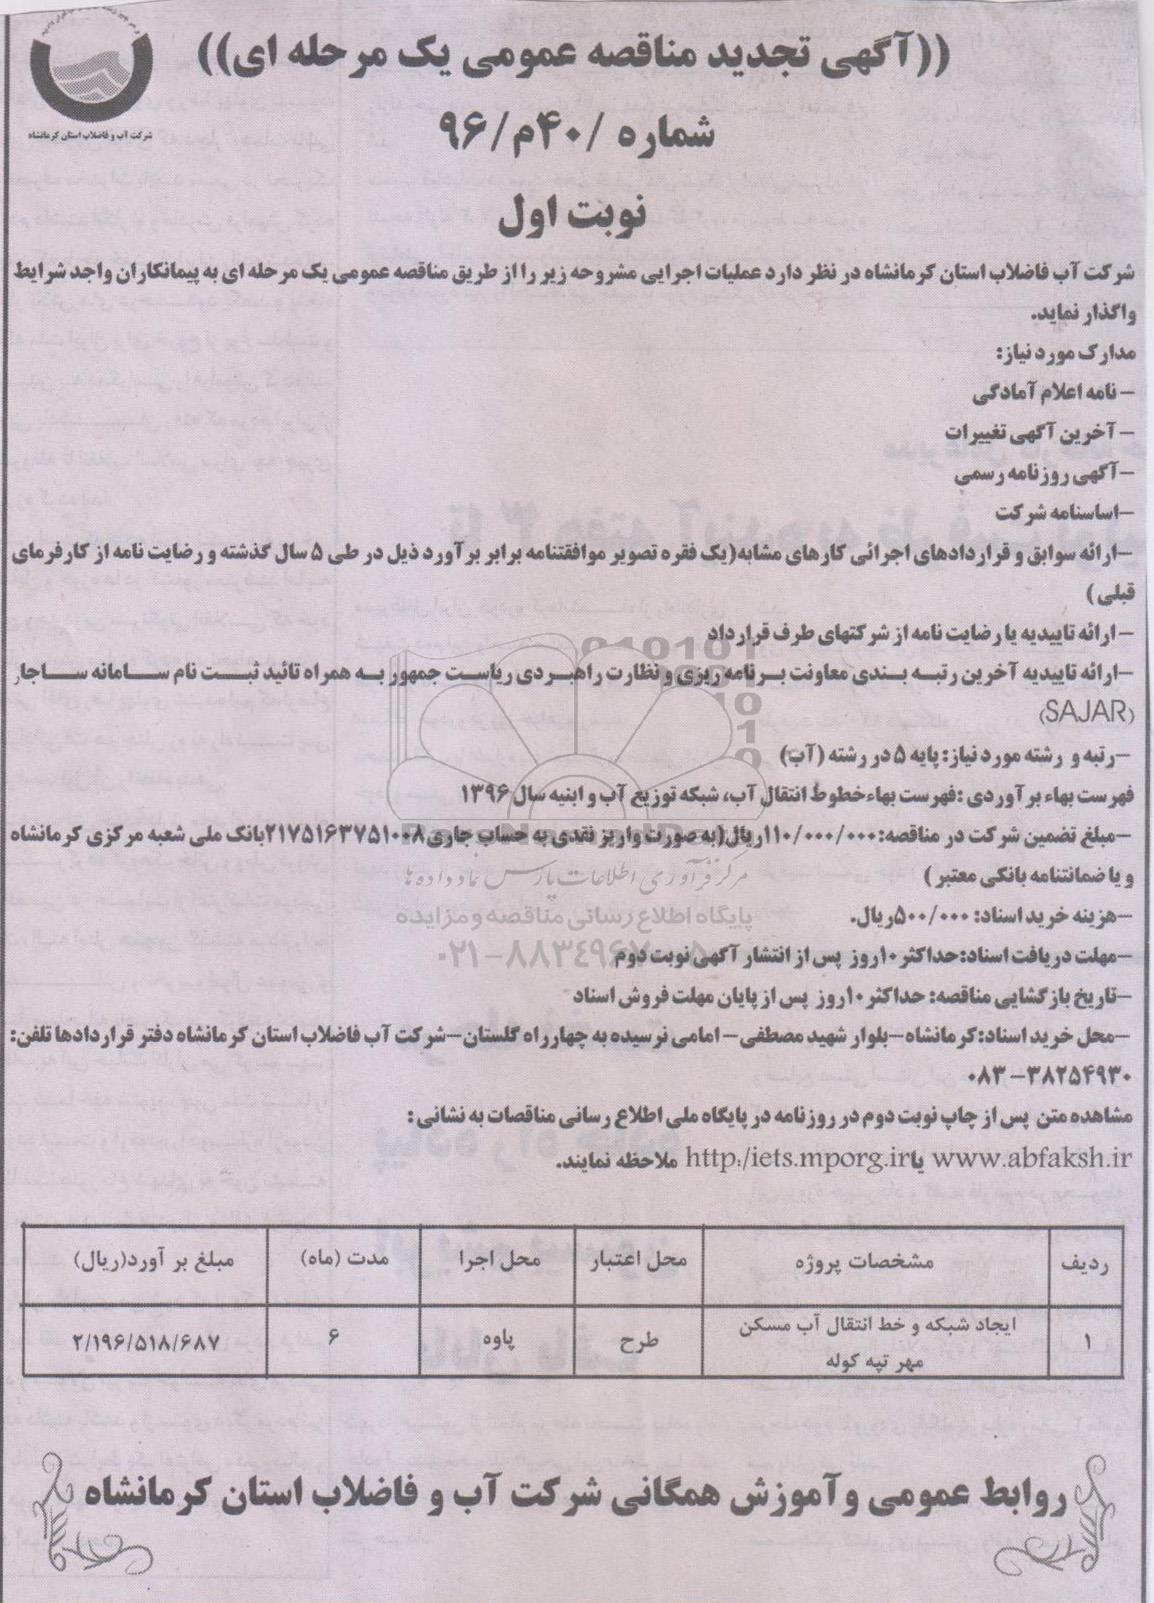 ((آگهی تجدید مناقصه عمومی یک مرحله ای))
شرکت آب و فاضلاب استان کرمانشاه
شماره /۴۰م/۹۶
نوبت اول
شرکت آب فاضلاب استان کرمانشاه در نظر دارد عملیات اجرایی مشروحه زیر را از طریق مناقصه عمومی یک مرحله ای به پیمانکاران واجد شرایط
واگذار نماید.
مدارک مورد نیاز:
- نامه اعلام آمادگی
- آخرین آگهی تغییرات
-آگهی روزنامه رسمی
-اساسنامه شرکت
-ارائه سوابق و قراردادهای اجرائی کارهای مشابه(یک فقره تصویر موافقتنامه برابر برآورد ذیل در طی ۵ سال گذشته و رضایت نامه از کارفرمای
قبلی)
- ارائه تاییدیه یا رضایت نامه از شرکتهای طرف قرارداد
-ارائه تاییدیه آخرین رتبه بندی معاونت برنامه ریزی و نظارت راهبردی ریاست جمهور به همراه تائید ثبت نام سامانه ساجار
(SAJAR)
-رتبه و رشته مورد نیاز: پایه ۵ در رشته (آب)
فهرست بهاء برآوردی :فهرست بهاءخطوط انتقال آب، شبکه توزیع آب و ابنیه سال ۱۳۹۶
-مبلغ تضمین شرکت در مناقصه: ۱۱۰/۰۰۰/۰۰۰ریال(به صورت واریز نقدی به حساب جاری۲۱۷۵۱۶۳۷۵۱۰۰۸بانک ملی شعبه مرکزی کرمانشاه
و یا ضمانتنامه بانکی معتبر )
-هزینه خرید اسناد: ۵۰۰/۰۰۰ریال.
-مهلت دریافت اسناد:حداکثر ۱۰روز پس از انتشار آگهی نوبت دوم
-تاریخ بازگشایی مناقصه: حداکثر ۱۰روز پس از پایان مهلت فروش اسناد
-محل خرید اسناد:کرمانشاه-بلوار شهید مصطفی- امامی نرسیده به چهارراه گلستان-شرکت آب فاضلاب استان کرمانشاه دفتر قراردادها تلفن:
۰۸۳-۳۸۲۵۴۹۳۰
مشاهده متن پس از چاپ نوبت دوم در روزنامه در پایگاه ملی اطلاع رسانی مناقصات به نشانی :
www.abfaksh.ir یا http:/iets.mporg.ir ملاحظه نمایند.
مرکز فرآوری اطلاعات پارس نماد داده ها
پایگاه اطلاع رسانی مناقصه و مزایده
ردیف مشخصات پروژه محل اعتبار محل اجرا مدت (ماه) مبلغ بر آورد(ریال)
۱ ایجاد شبکه و خط انتقال آب مسکن مهر تپه کوله طرح پاوه ۶ ۲/۱۹۶/۵۱۸/۶۸۷
روابط عمومی وآموزش همگانی شرکت آب و فاضلاب استان کرمانشاه